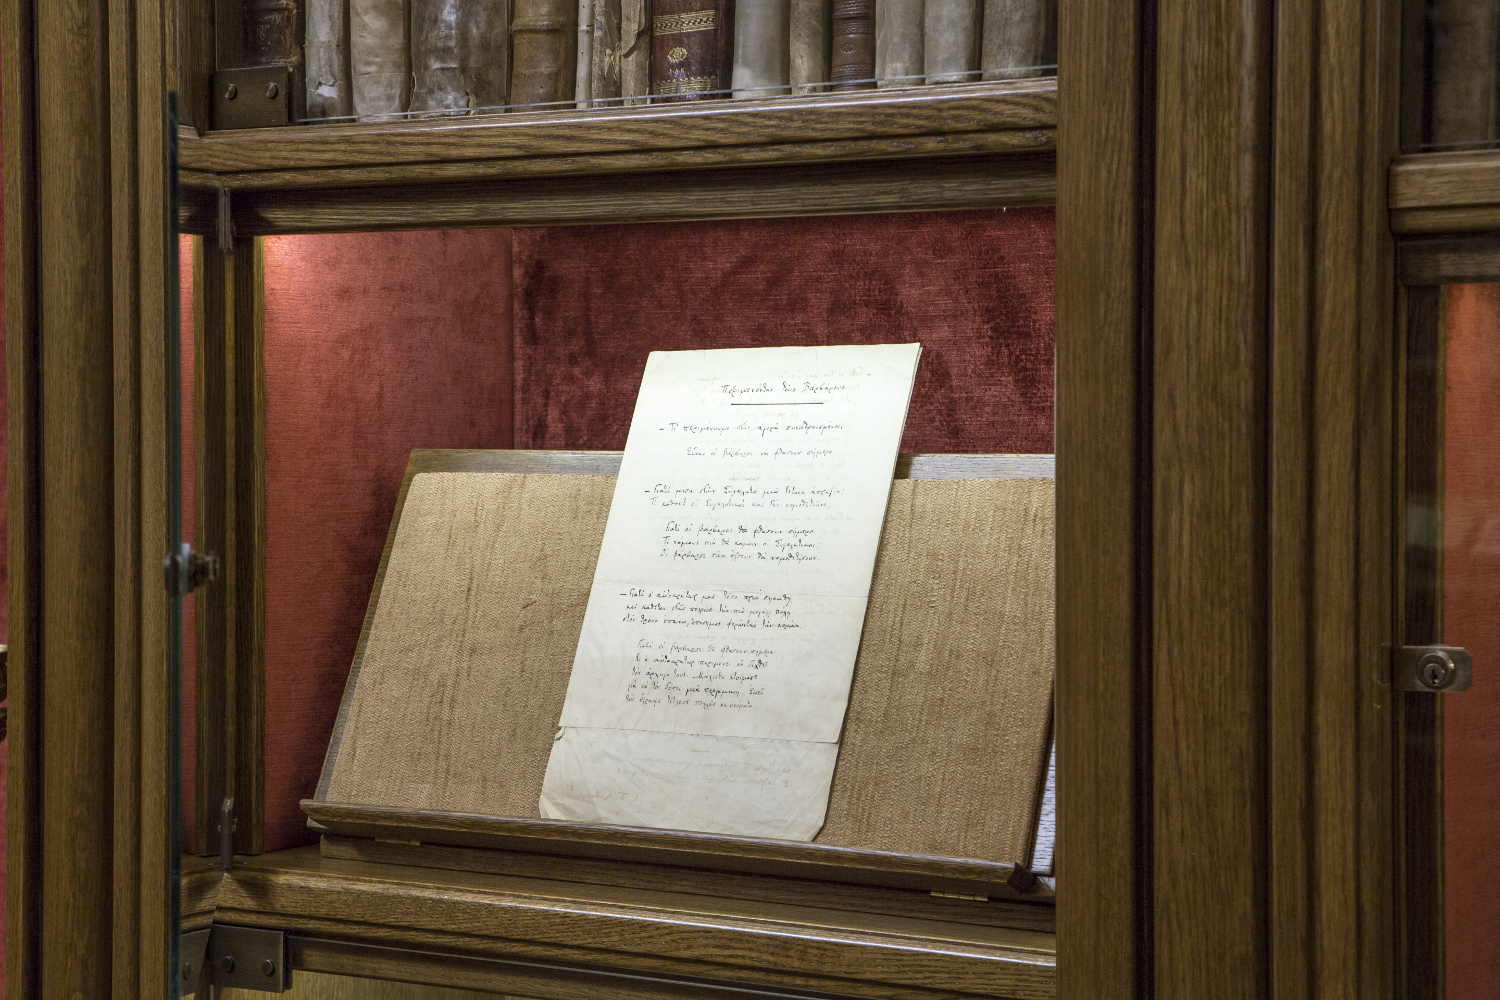 Περιμένοντας τοὺς Βαρβάρους
– Τί περιμένουμε στὴν ἀγορὰ συναθροισμένοι;
Εἶναι οἱ βάρβαροι νὰ φθάσουν σήμερα.
– Γιατὶ μέσα στὴν Σύγκλητο μιὰ τέτοια ἀπραξία;
Τί κάθοντ' οἱ Συγκλητικοὶ καὶ δὲν νομοθετοῦνε;
Γιατὶ οἱ βάρβαροι θὰ φθάσουν σήμερα.
Τί νόμους πιὰ θὰ κάμουν οἱ Συγκλητικοί;
Οἱ βάρβαροι σὰν ἔλθουν θὰ νομοθετήσουν.
– Γιατὶ ὁ αὐτοκράτωρ μας τόσο πρωῒ σηκώθη,
καὶ κάθεται στῆς πόλεως τὴν πιὸ μεγάλη πύλη
στὸν θρόνο ἐπάνω, ἐπίσημος, φορώντας τὴν κορώνα;
Γιατὶ οἱ βάρβαροι θὰ φθάσουν σήμερα.
Κι ὁ αὐτοκράτωρ περιμένει νὰ δεχθεῖ
τὸν ἀρχηγό τους. Μάλιστα ἑτοίμασε
γιὰ νὰ τὸν δώσει μιὰ περγαμηνή. Ἐκεῖ
τὸν ἔγραψε τίτλους πολλοὺς κι ὀνόματα.